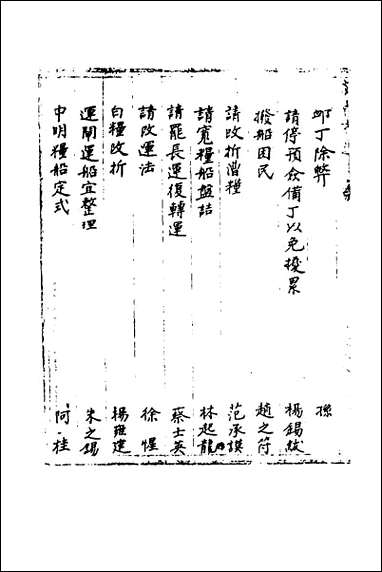 卹丁除弊 孫
請停預僉備丁以免擾累 楊錫紱
撥船困民 趙之符
請改折漕糧 范承謨
請寬糧船盤詰 林起龍
請罷長運復轉運 蔡士英
請改運法 徐惺
白糧改折 楊雍建
運閘運船宜整理 朱之錫
申明糧船定式 阿桂